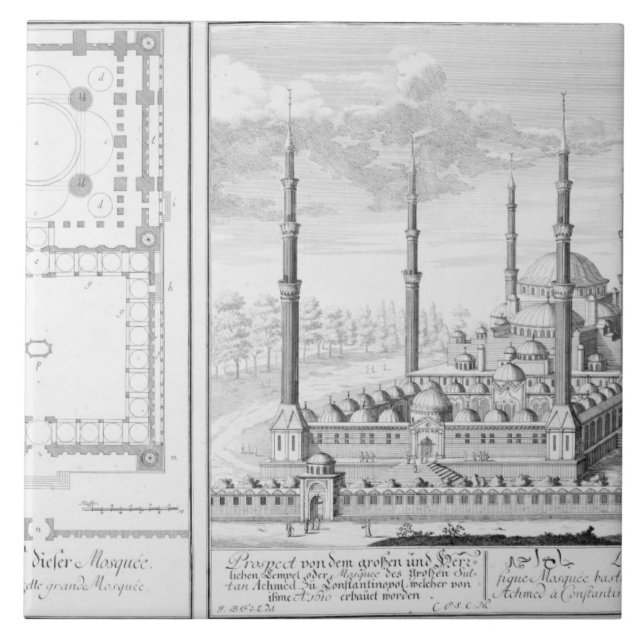 dieser Mosquée.
ette grande Mosquée.
Prospect von dem großen und Herr-
lichen Tempel oder Mosquée des großen Sul-
tan Achmed zu Constantinopol, welcher von
ihme A. 1610 erbauet worden.
C.P.S.C.M.
fique Mosquée bast
Achmed à Constantin